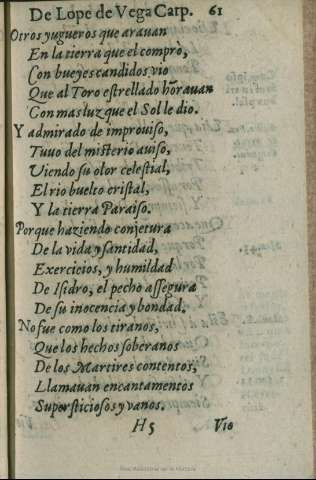 De Lope de Vega Carp. 61
Otros yugueros que arauan
En la tierra que el comprò,
Con bueyes candidos vio
Que al Toro estrellado hõrauan
Con mas luz que el Sol le dio.
Y admirado de improuiso,
Tuuo del misterio auiso,
Viendo su olor celestial,
El rio buelto cristal,
Y la tierra Paraiso.
Porque haziendo conjetura
De la vida y santidad,
Exercicios, y humildad
De Isidro, el pecho assegura
De su inocencia y bondad.
No fue como los tiranos,
Que los hechos soberanos
De los Martires contentos,
Llamauan encantamentos
Supersticiosos y vanos.
H5 Vio